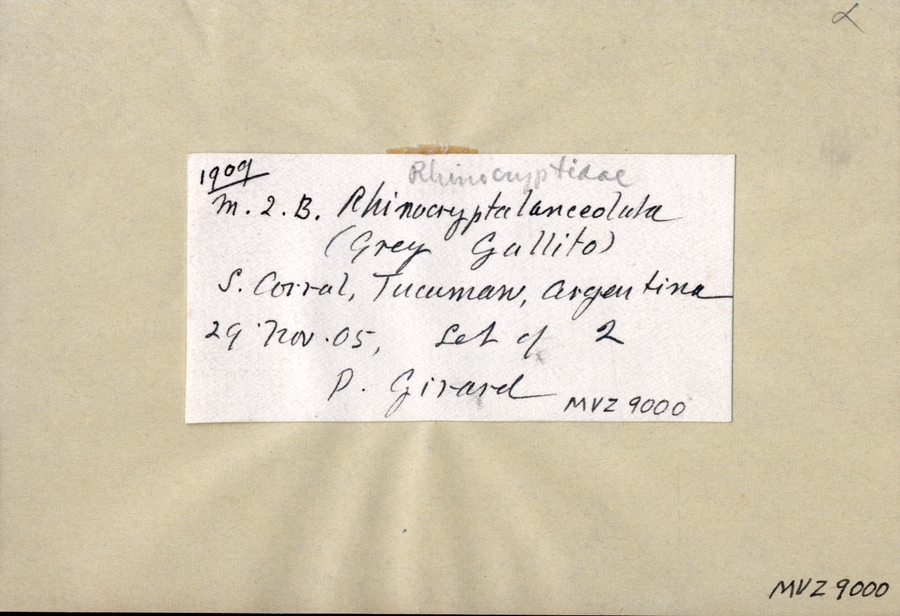 1909
Rhinocryptidae
M. 2. B. Rhinocrypta lanceolata
(Grey Gallito)
S. Corral, Tucuman, Argentina
29 Nov. 05, Set of 2
P. Girard
MVZ 9000
MVZ 9000